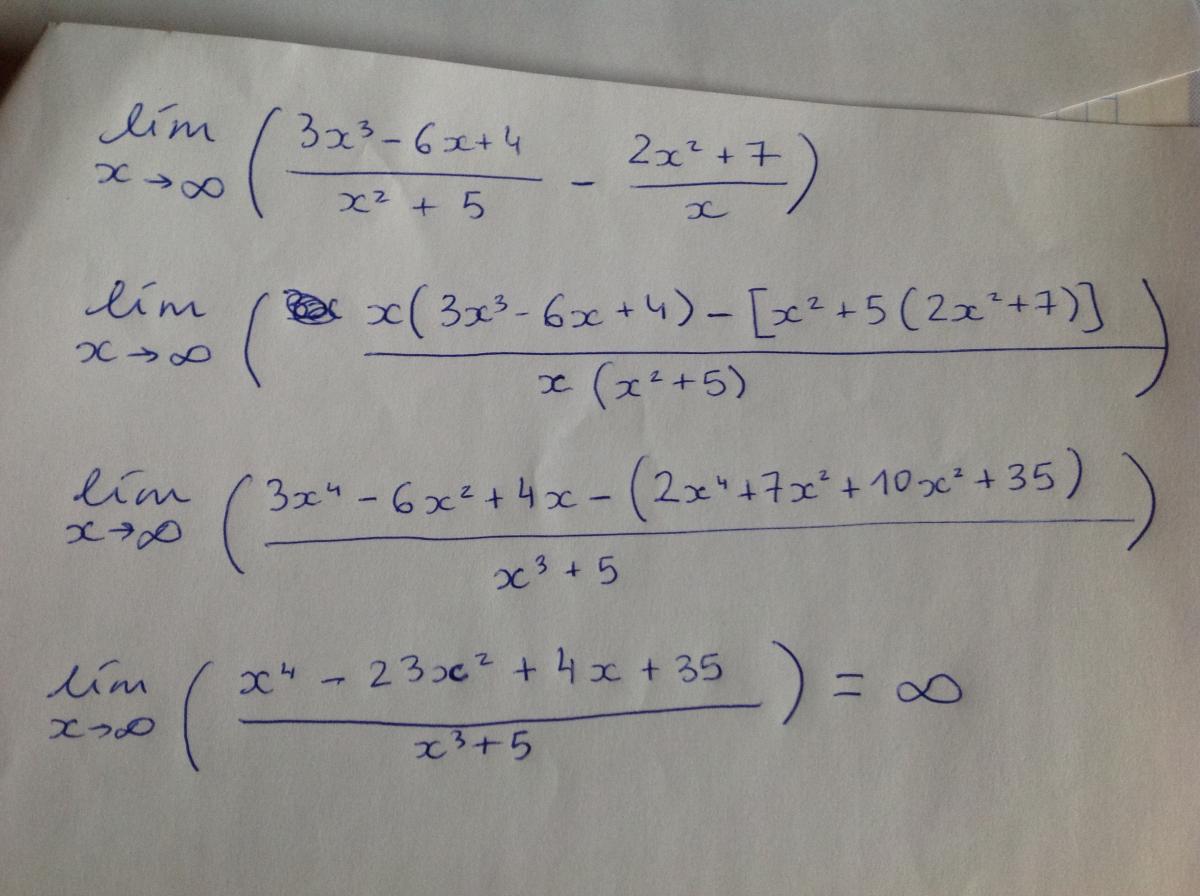 lím x→∞ ( (3x³ - 6x + 4)/(x² + 5) - (2x² + 7)/x )
lím x→∞ ( (x(3x³ - 6x + 4) - [x² + 5(2x² + 7)])/(x(x² + 5)) )
lím x→∞ ( (3x⁴ - 6x² + 4x - (2x⁴ + 7x² + 10x² + 35))/(x³ + 5) )
lím x→∞ ( (x⁴ - 23x² + 4x + 35)/(x³ + 5) ) = ∞